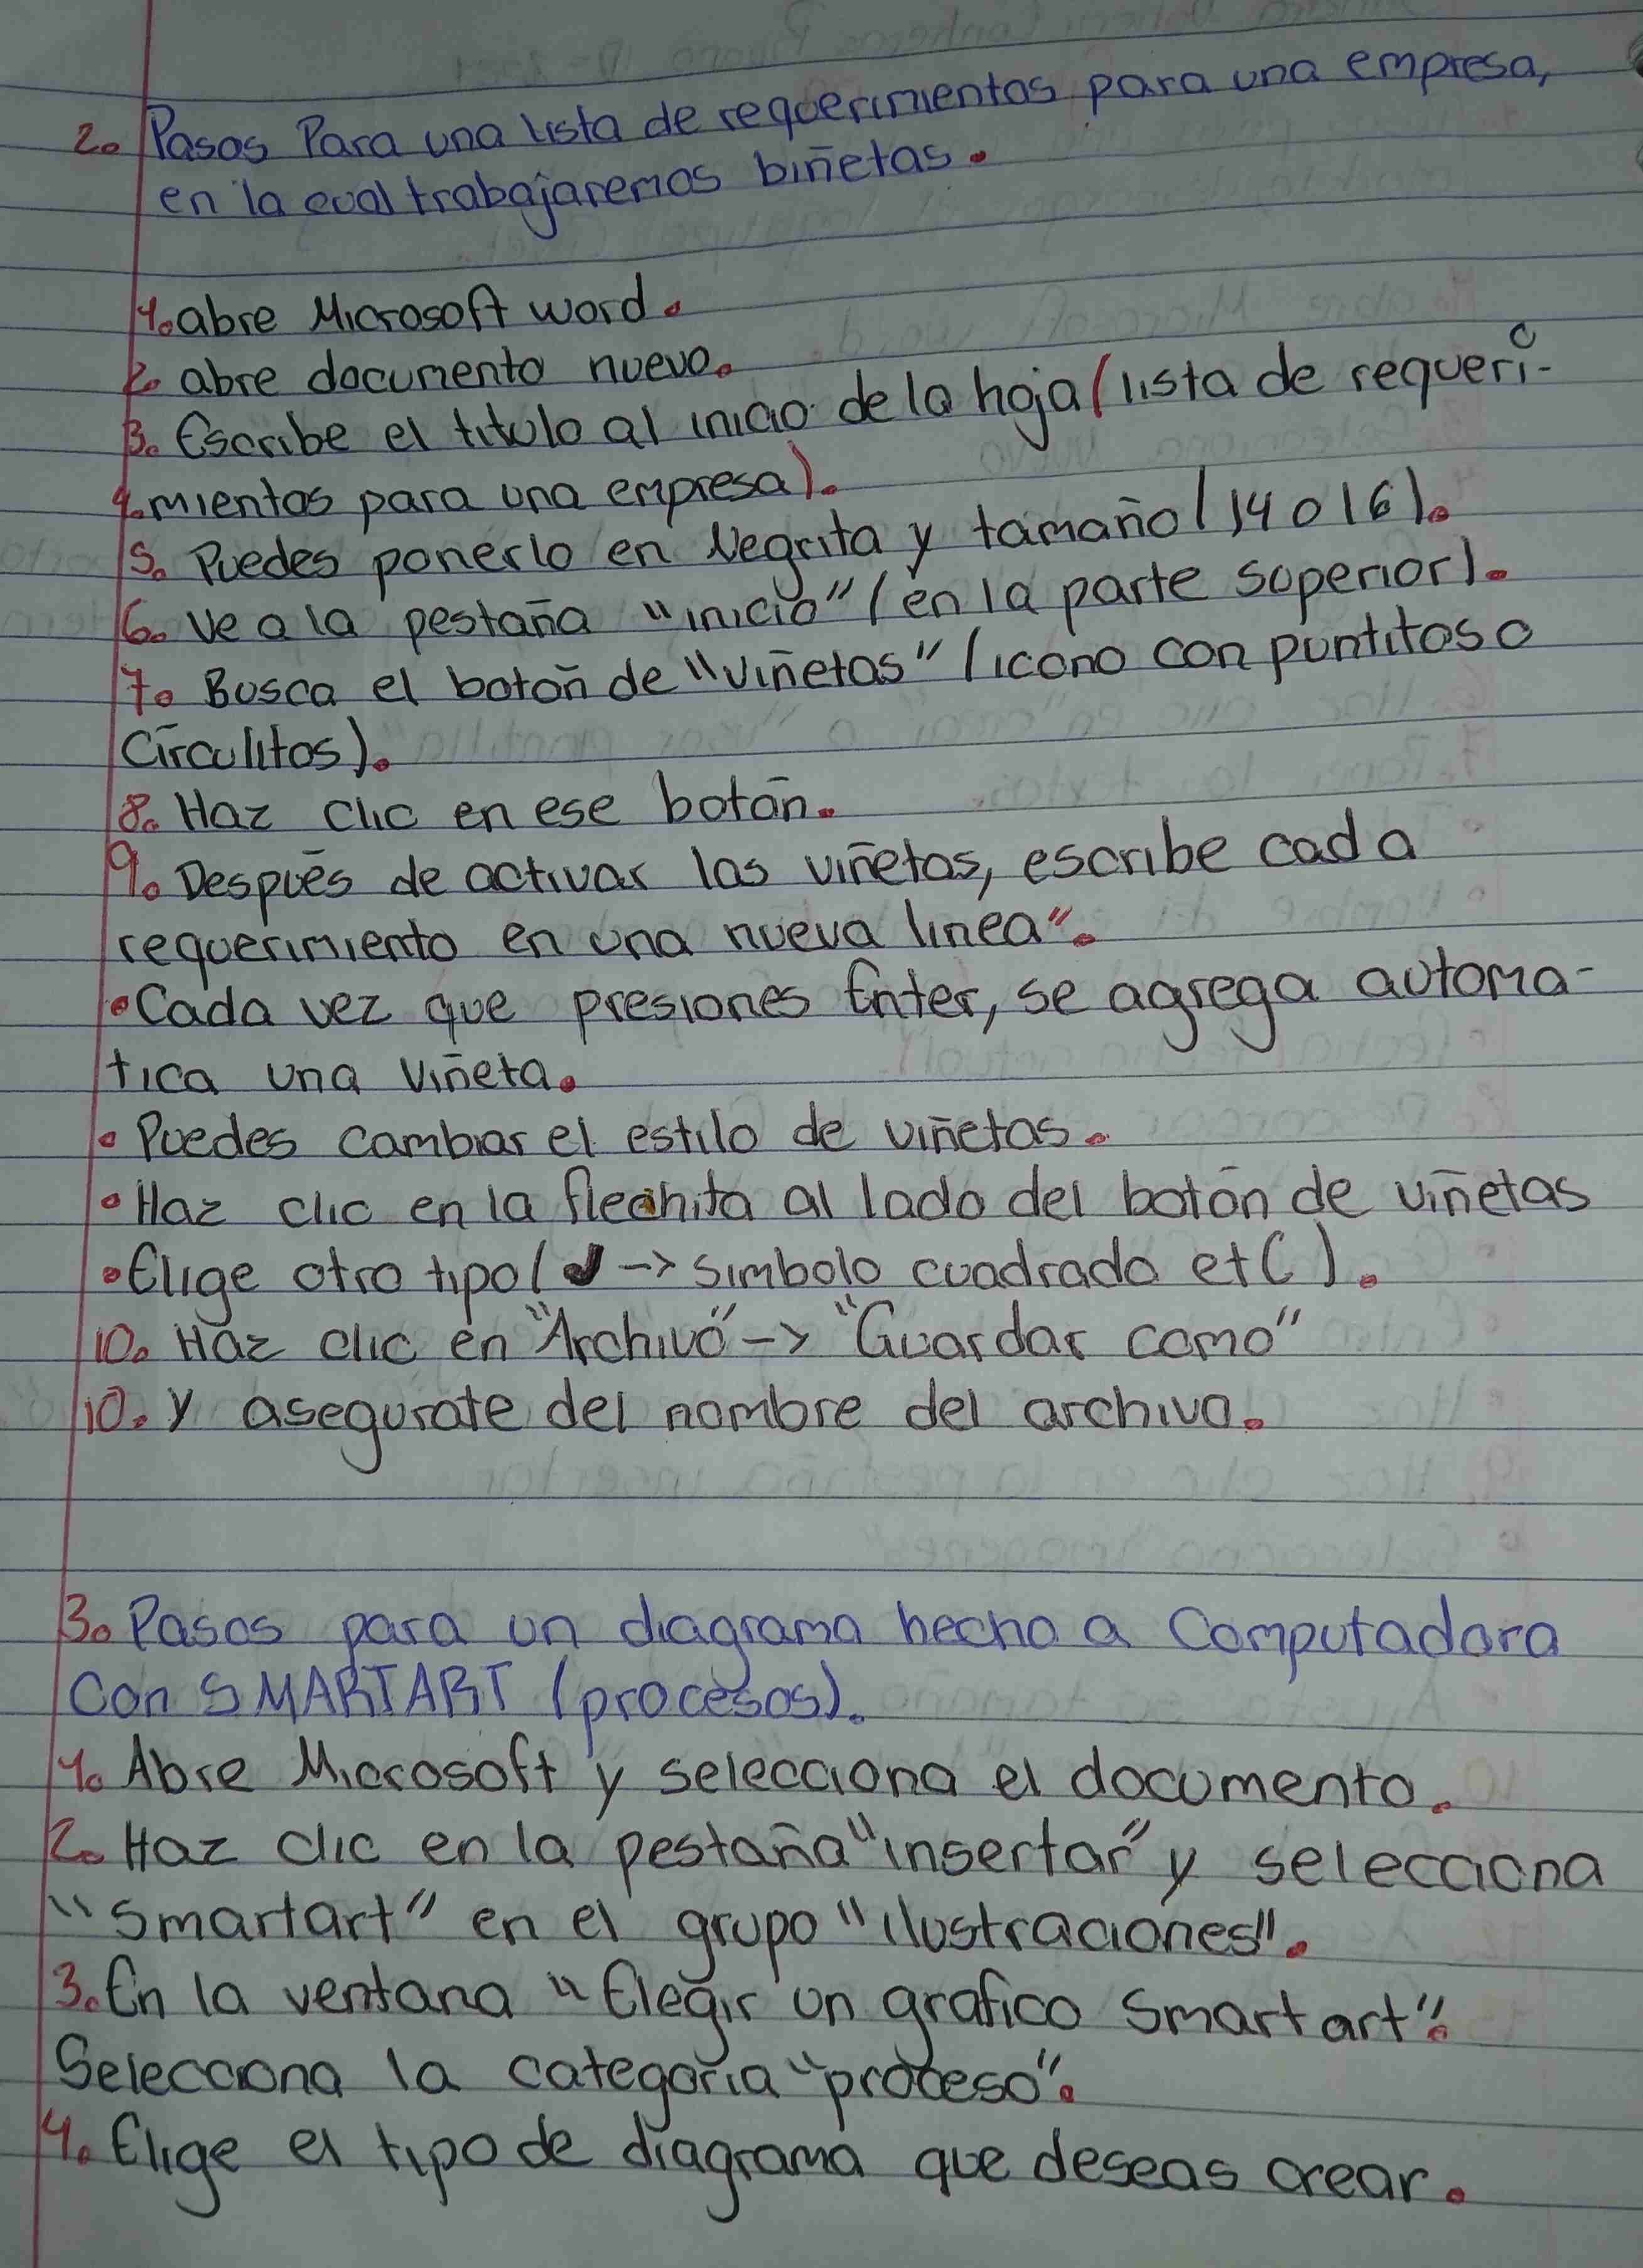 2. Pasos Para una lista de requerimientos para una empresa,
en la cual trabajaremos biñetas.
1. abre Microsoft word.
2. abre documento nuevo.
3. Escribe el titulo al inicio de la hoja (lista de requeri-
4. mientos para una empresa).
5. Puedes ponerlo en Negrita y tamaño (14 o 16).
6. Ve a la pestaña "inicio" (en la parte superior).
7. Busca el botón de "viñetas" (icono con puntitos o
Círculitos).
8. Haz clic en ese botón.
9. Después de activar las viñetas, escribe cada
requerimiento en una nueva linea".
• Cada vez que presiones Enter, se agrega automa-
tica una viñeta.
• Puedes cambiar el estilo de viñetas.
• Haz clic en la flechita al lado del botón de viñetas
• Elige otro tipo ( -> simbolo cuadrado etc).
10. Haz clic en "Archivo" -> "Guardar como"
10. y asegurate del nombre del archivo.
3. Pasos para un diagrama hecho a Computadora
Con SMARTART (procesos).
1. Abre Microsoft y selecciona el documento.
2. Haz clic en la pestaña "insertar" y selecciona
"Smartart" en el grupo "ilustraciones".
3. En la ventana "Elegir un grafico Smartart".
Selecciona la categoría "proceso".
4. Elige el tipo de diagrama que deseas crear.